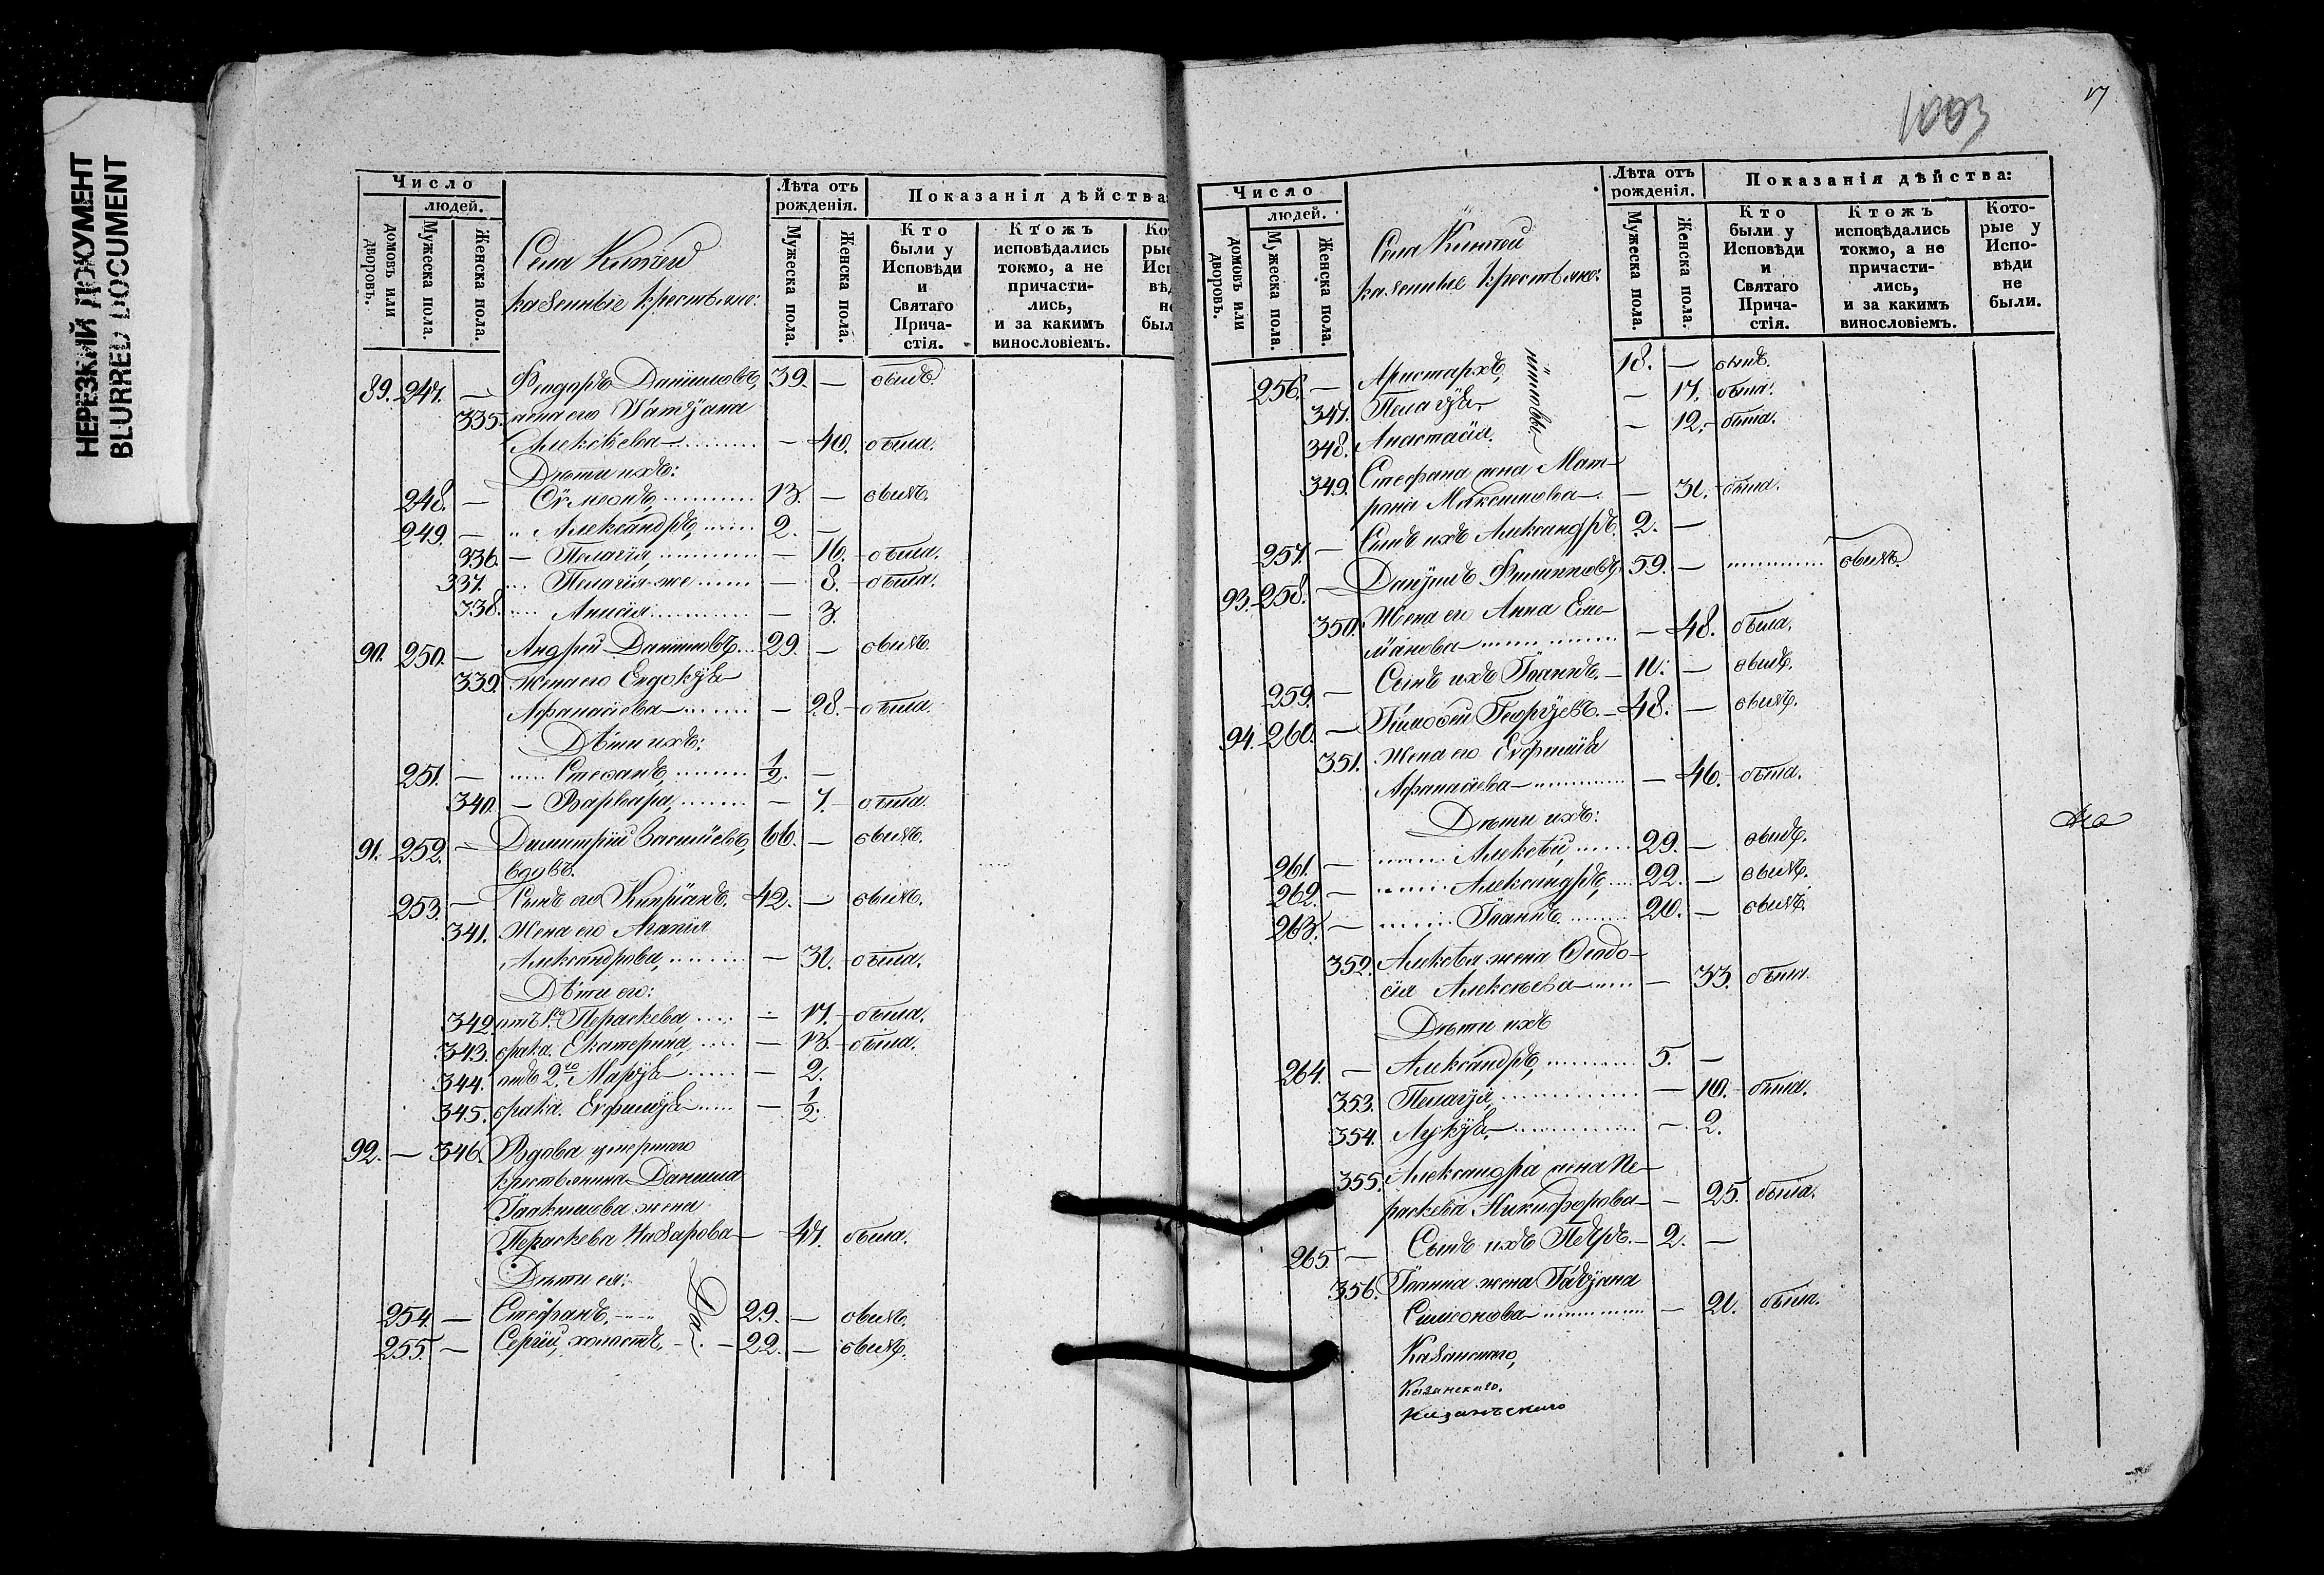 НЕРЕЗКИЙ ДОКУМЕНТ
BLURRED DOCUMENT
Число
людей.
домовъ или дворовъ.
Мужеска пола.
Женска пола.
Села
казенные крестьяне:
Лѣта отъ рожденія.
Мужеска пола.
Женска пола.
Показанія дѣйства:
Кто были у Исповѣди и Святаго Причастія.
Ктожъ исповѣдались токмо, а не причастились, и за какимъ винословіемъ.
89. 247. — Ѳеодоръ Даниловъ, 39. — былъ.
335. жена его Татіана
Алексѣева — 40. была.
Дѣти ихъ:
248. — Сѵмеонъ, 13. — былъ.
249. — Александръ, 2. —
336. — Пелагія, — 16. была.
337. Пелагія же — 8. была.
338. Анисія — 3.
90. 250. — Андрей Даниловъ 29. — былъ.
339. Жена его Евдокія
Аѳанасіева — 28. была.
Дѣти ихъ:
251. — Стефанъ, 1/2. —
340. — Варвара, — 7. была.
91. 252. — Димитрій Василіевъ, 66. — былъ.
вдовъ.
253. — Сынъ его Кипріанъ. 42. — былъ.
341. Жена его Агапія
Александрова, — 31. была.
Дѣти его:
342. отъ 1го Параскева — 17. была.
343. брака. Екатерина, — 13. была.
344. отъ 2го Марія — 2.
345. брака. Евфимія — 1/2.
92. — 346. Вдова умершаго
крестьянина Данила
жена
Параскева Назарова — 47. была.
Дѣти ея:
254. — Стефанъ, 29. — былъ.
255. — Сергій, холостъ, 22. — былъ.
1003
17
Число
людей.
домовъ или дворовъ.
Мужеска пола.
Женска пола.
Села
казенные крестьяне:
Лѣта отъ рожденія.
Мужеска пола.
Женска пола.
Показанія дѣйства:
Кто были у Исповѣди и Святаго Причастія.
Ктожъ исповѣдались токмо, а не причастились, и за какимъ винословіемъ.
Которые у Исповѣди не были.
256. — Аристархъ, 18. — былъ.
347. Пелагія, — 17. была.
348. Анастасія. — 12. была.
349. Стефана жена Мат-
рона Максимова — 31. была.
257. — Сынъ ихъ Александръ. 2. —
93. 258. — Даніилъ Филипповъ, 59. — былъ.
350. Жена его Анна Еме-
ліанова — 48. была.
259. — Сынъ ихъ Іоаннъ. 10. — былъ.
94. 260. — Тимоѳей Георгіевъ. 48. — былъ.
351. Жена его Евфимія
Аѳанасіева — 46. была.
Дѣти ихъ:
261. — Алексѣй, 29. — былъ.
262. — Александръ, 22. — былъ.
263. — Іоаннъ. 20. — былъ.
352. Алексѣя жена Ѳеодо-
сія Алексѣева — 33. была.
Дѣти ихъ
264. — Александръ, 5. —
353. Пелагія, — 10. была.
354. Лукія, — 2.
355. Александра жена Па-
раскева Никифорова — 25. была.
265. — Сынъ ихъ Петръ. 2. —
356. Іоанна жена Татіана
Симеонова — 21. была.
Казанскаго,
Казанскаго,
Казанскаго